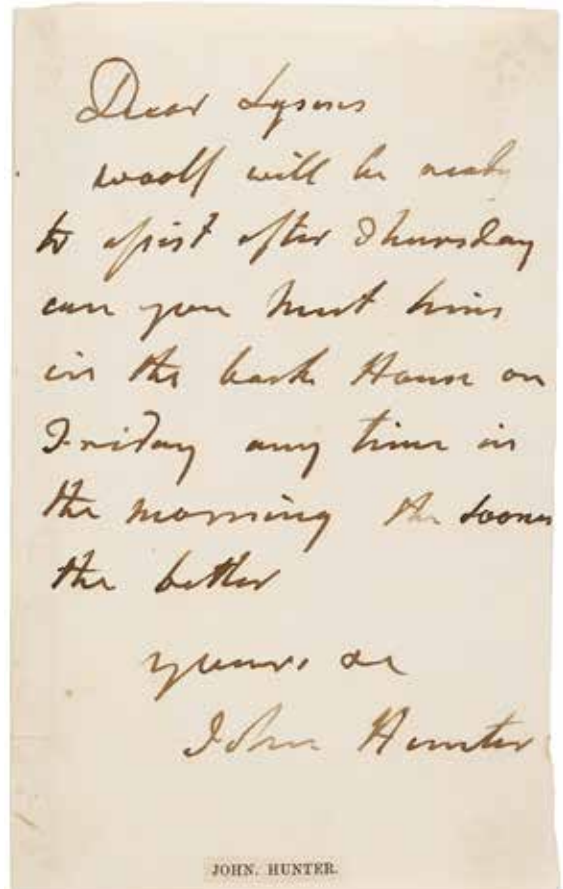 Dear Lysons
woolf will be ready
to asist after Thursday
can you meet him
in the back House on
Friday any time in
the morning the sooner
the better
yours &c
John Hunter
JOHN. HUNTER.